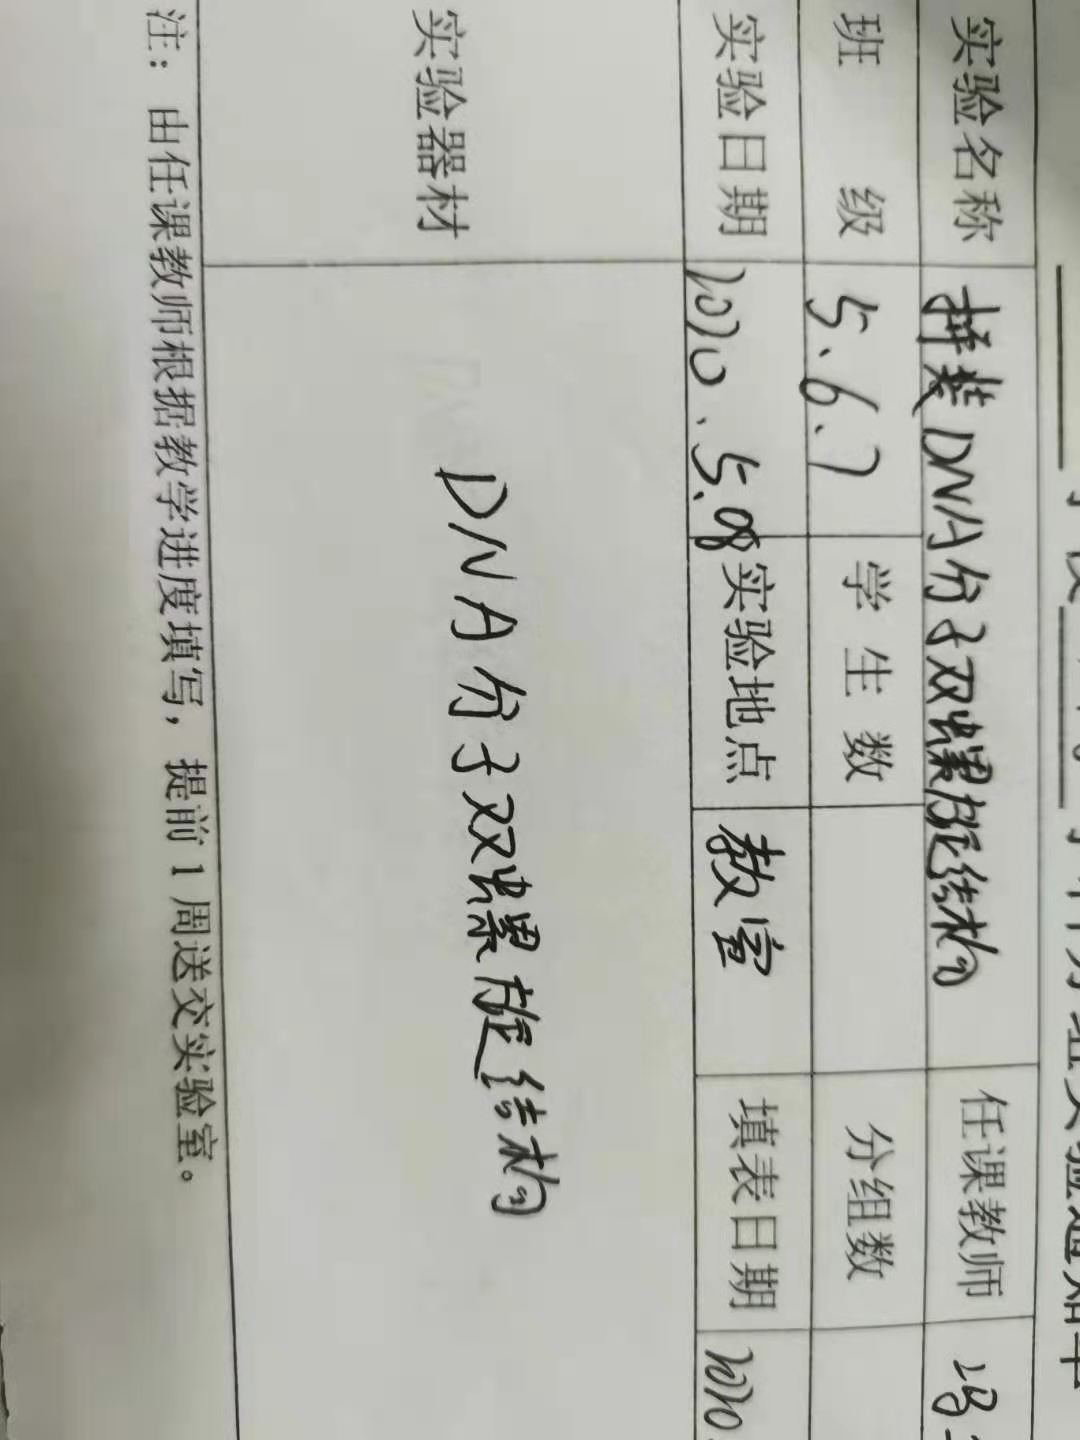 分组实验通知单
实验名称 拼装DNA分子双螺旋结构 任课教师 冯
班级 5.6.7 学生数 分组数
实验日期 2020.5.08 实验地点 教室 填表日期 2020.
实验器材 DNA分子双螺旋结构
注：由任课教师根据教学进度填写，提前1周送交实验室。